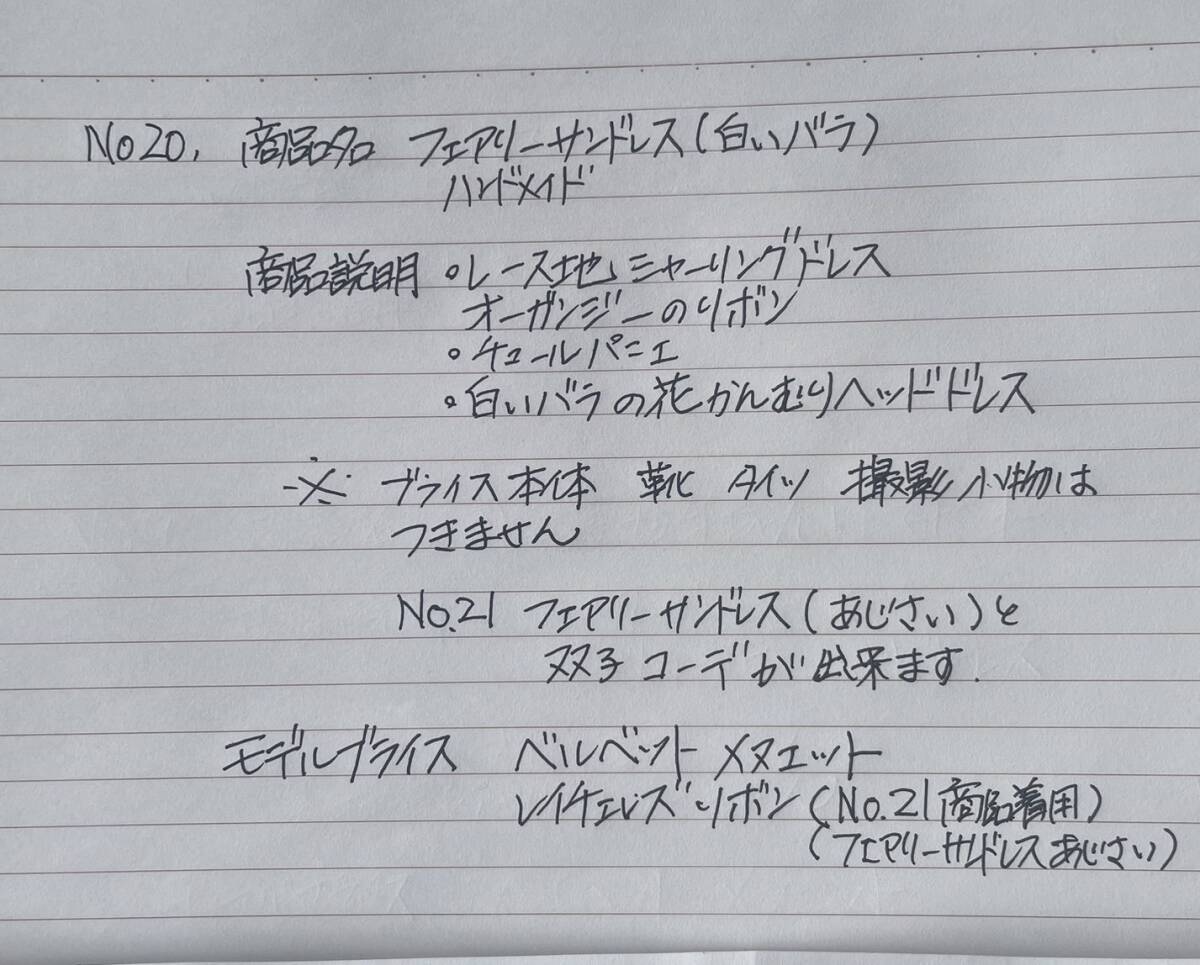 No20. 商品名 フェアリーサンドレス(白いバラ)
ハンドメイド
商品説明 ・レース地 シャーリングドレス
オーガンジーのリボン
・チュールパニエ
・白いバラの花かんむりヘッドドレス
※ ブライス本体 靴 タイツ 撮影小物は
つきません
No.21 フェアリーサンドレス(あじさい)と
双子コーデが出来ます.
モデルブライス ベルベット メヌエット
レイチェレズリボン(No.21商品着用)
(フェアリーサンドレスあじさい)